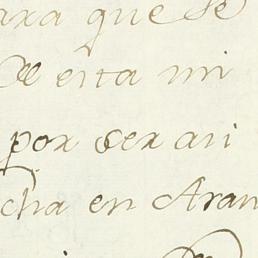 para que se
esta mi
por ser asi
cha en Aran